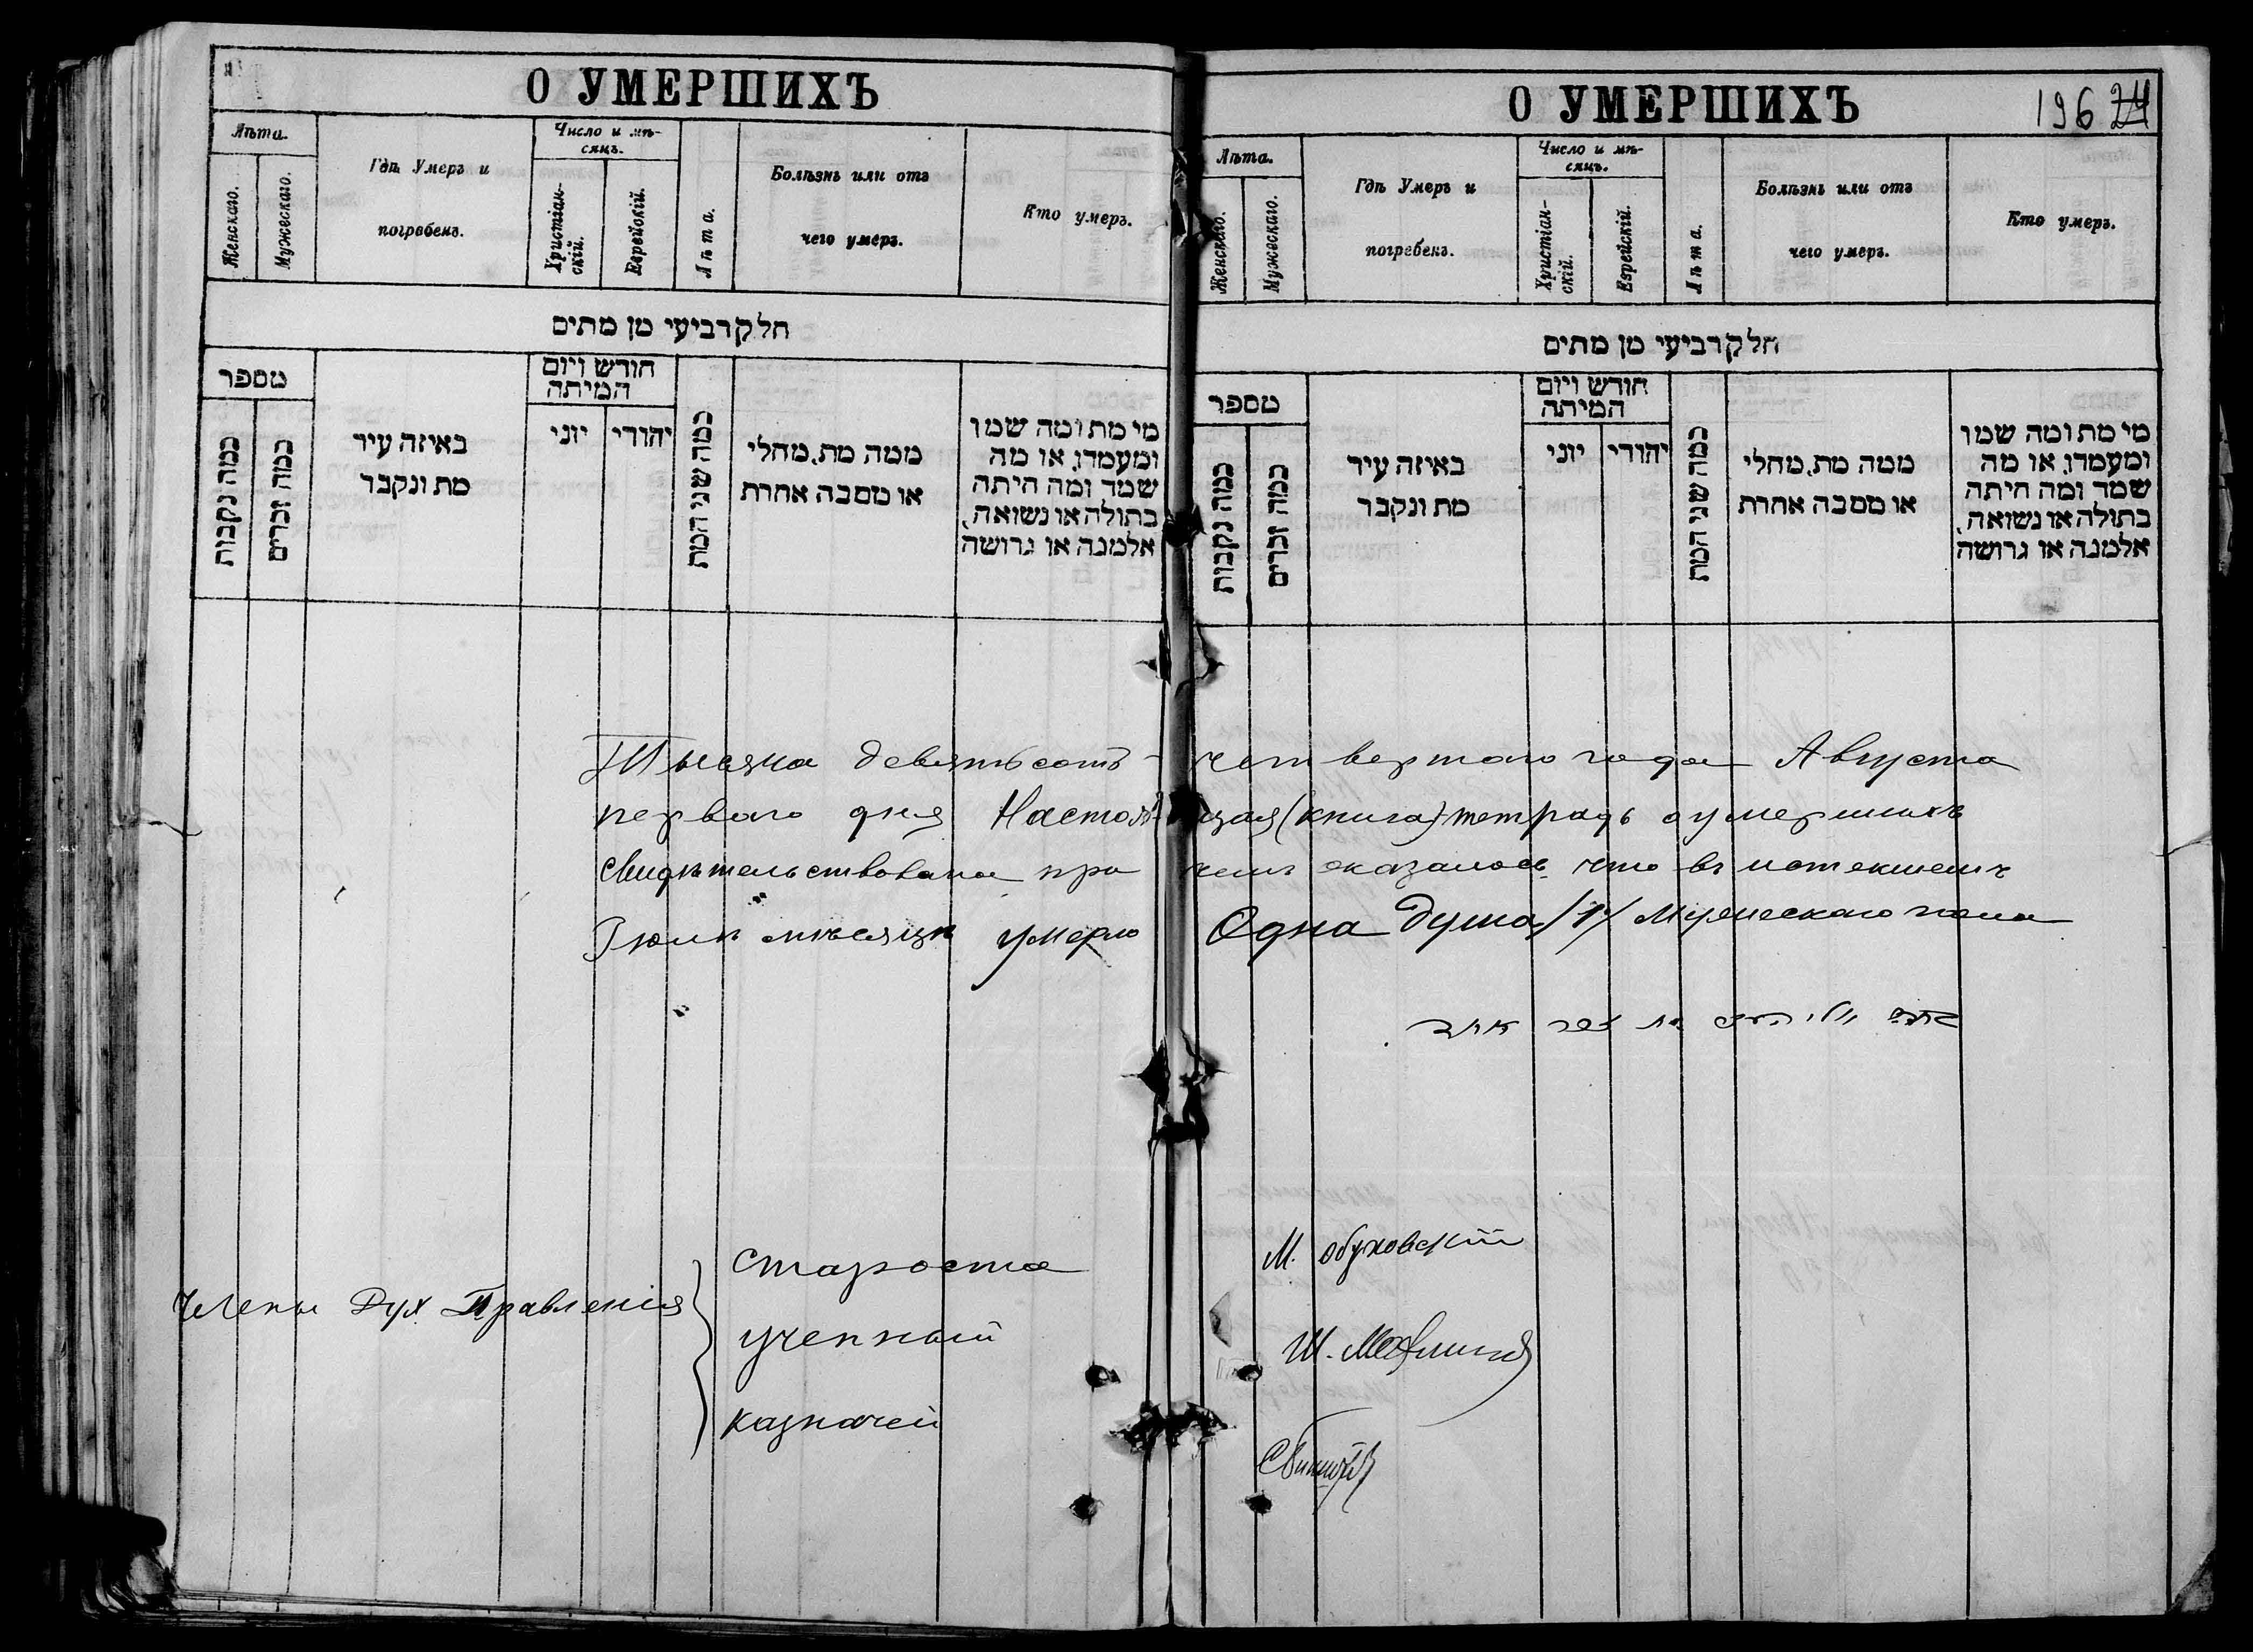 О УМЕРШИХЪ
Лѣта.
Женскаго.
Мужескаго.
Гдѣ Умеръ и
погребенъ.
Число и мѣ-
сяцъ.
Христіан-
скій.
Еврейскій.
Лѣта.
Болѣзнь или отъ
чего умеръ.
Кто умеръ.
חלק רביעי מן מתים
מספר
כמה נקבות
כמה זכרים
באיזה עיר
מת ונקבר
חודש ויום
המיתה
יוני
יהודי
כמה שני המת
ממה מת, מחלי
או מסבה אחרת
מי מת ומה שמו
ומעמדו, או מה
שמד ומה היתה
בתולה או נשואה,
אלמנה או גרושה
О УМЕРШИХЪ
196 24
Лѣта.
Женскаго.
Мужескаго.
Гдѣ Умеръ и
погребенъ.
Число и мѣ-
сяцъ.
Христіан-
скій.
Еврейскій.
Лѣта.
Болѣзнь или отъ
чего умеръ.
Кто умеръ.
חלק רביעי מן מתים
מספר
כמה נקבות
כמה זכרים
באיזה עיר
מת ונקבר
חודש ויום
המיתה
יוני
יהודי
כמה שני המת
ממה מת, מחלי
או מסבה אחרת
מי מת ומה שמו
ומעמדו, או מה
שמד ומה היתה
בתולה או נשואה,
אלמנה או גרושה
Тысяча девятьсотъ - четвертаго года Августа
перваго дня Настоящая (книга) тетрадь о умершихъ
свидѣтельствована при чемъ оказалось что въ истекшемъ
Іюлѣ мѣсяцѣ умерло Одна душа /1/ Мужескаго пола
מת זכר אחד
Члены Дух Правленія
Староста
М. Обуховскій
ученный
Ш.
казначей